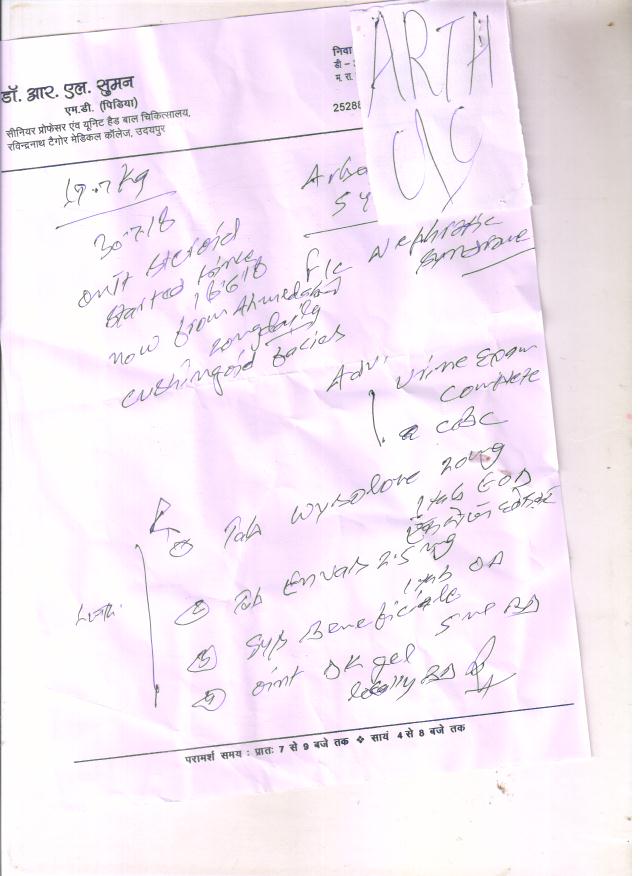 डॉ. आर. एल. सुमन
एम.डी. (पिडिया)
सीनियर प्रोफेसर एंव यूनिट हैड बाल चिकित्सालय,
रविन्द्रनाथ टैगोर मेडिकल कॉलेज, उदयपुर
निवा
डी -
म. रा.
2528
ARTH
Kg
Nephrotic
Syndrome
30.7.18
omit steroid
started since
16.6.18
now from Ahmedabad
20mg daily
cushingoid facies
Adv.
Urine Exam
complete
CBC
Tab Wysolone 20mg
1 tab EOD
Tab Envas 2.5 mg
1 tab OD
Syp Beneficiale
5 ml BD
oint DK gel
locally BD
परामर्श समय : प्रातः 7 से 9 बजे तक ❖ सायं 4 से 8 बजे तक